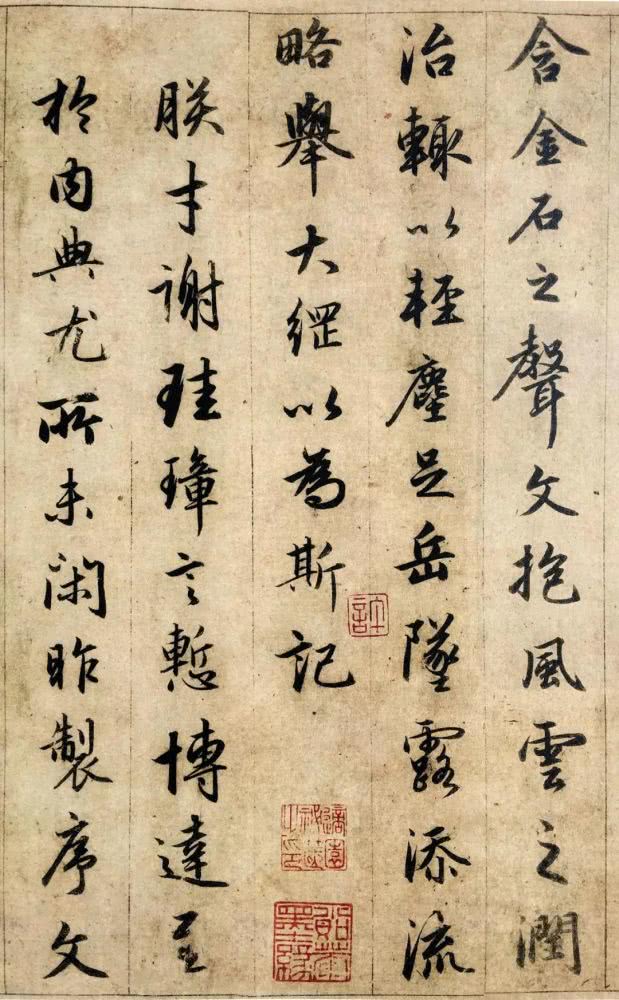 含金石之聲文抱風雲之潤
治輙以輕塵足岳墜露添流
略舉大綱以為斯記
朕才謝珪璋言慙博達至
於內典尤所未閑昨製序文